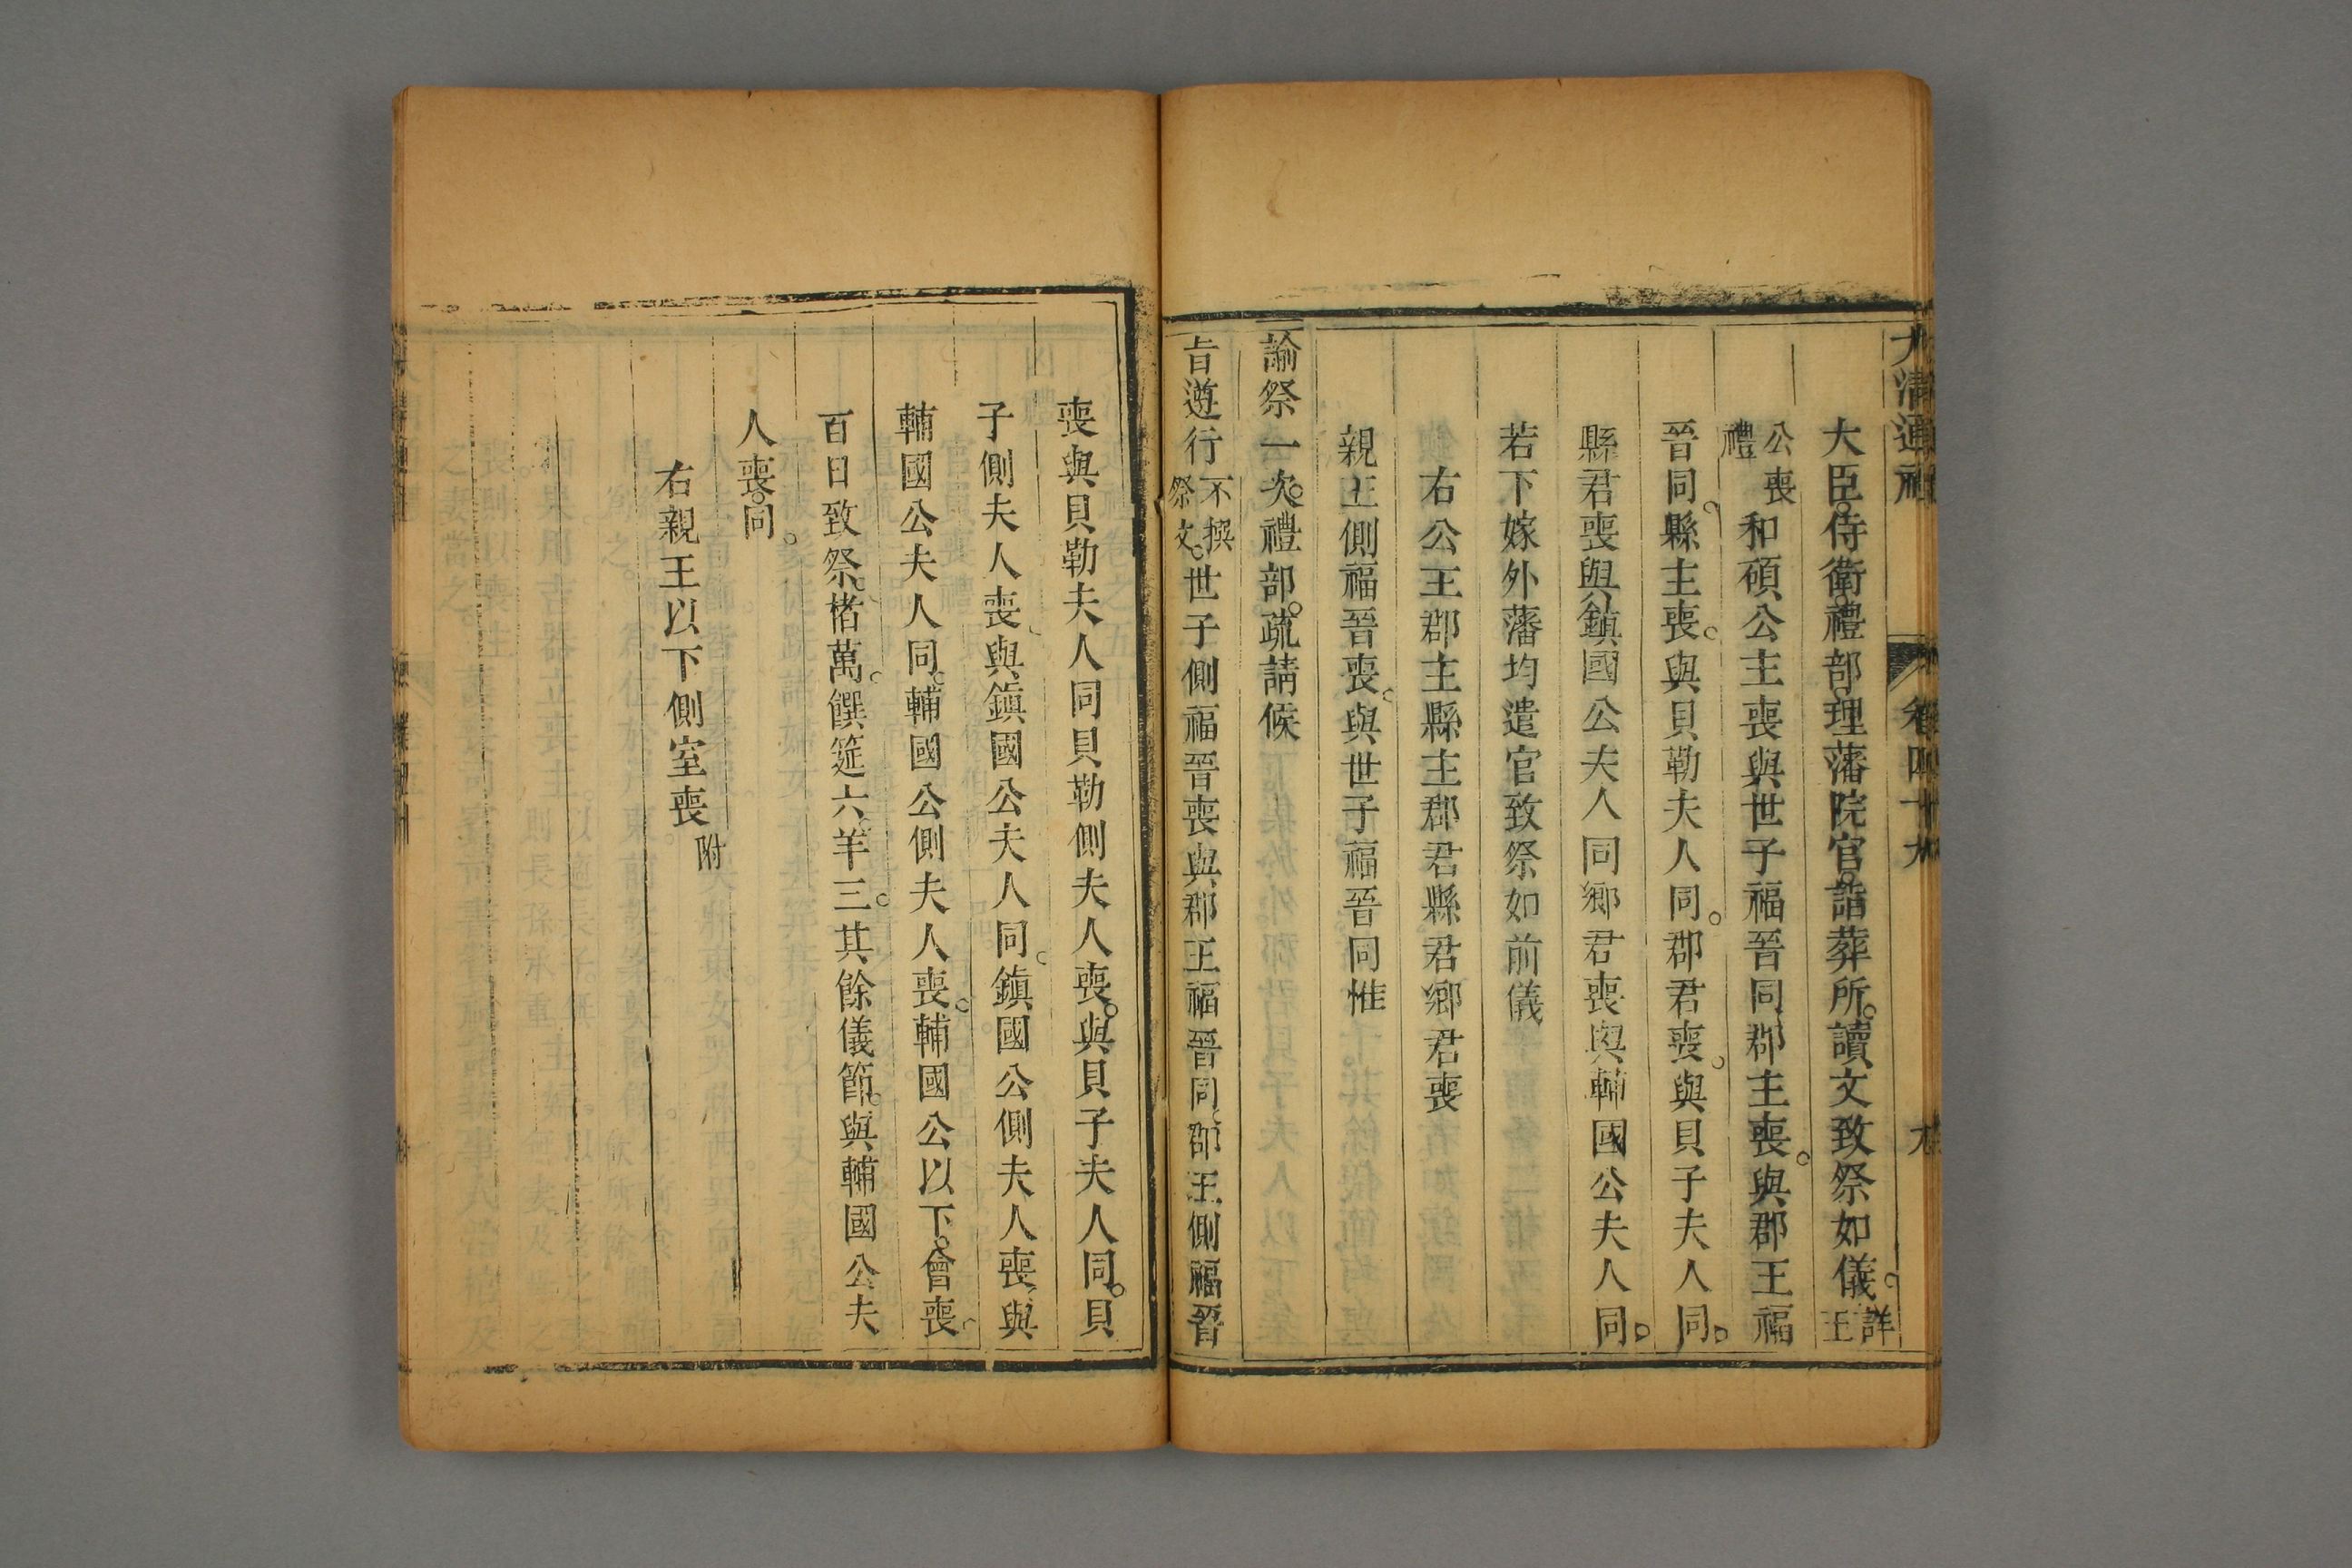 大清通禮 卷四十九 九
大臣。侍衛。禮部理藩院官。詣葬所。讀文致祭如儀。詳王
公喪禮和碩公主喪與世子福晉同郡主喪。與郡王福
晉同。縣主喪。與貝勒夫人同。郡君喪。與貝子夫人同。
縣君喪與鎮國公夫人同鄉君喪與輔國公夫人同。
若下嫁外藩均遣官致祭如前儀
右公主郡主縣主郡君縣君鄉君喪
親王側福晉喪。與世子福晉同惟
諭祭一次。禮部。疏請候
旨遵行不撰祭文。世子側福晉喪與郡王福晉同。郡王側福晉
喪與貝勒夫人同貝勒側夫人喪。與貝子夫人同。貝
子側夫人喪。與鎮國公夫人同。鎮國公側夫人喪與
輔國公夫人同。輔國公側夫人喪。輔國公以下。會喪。
百日致祭。楮萬。饌筵六羊三。其餘儀節。與輔國公夫
人喪。同。
右親王以下側室喪附